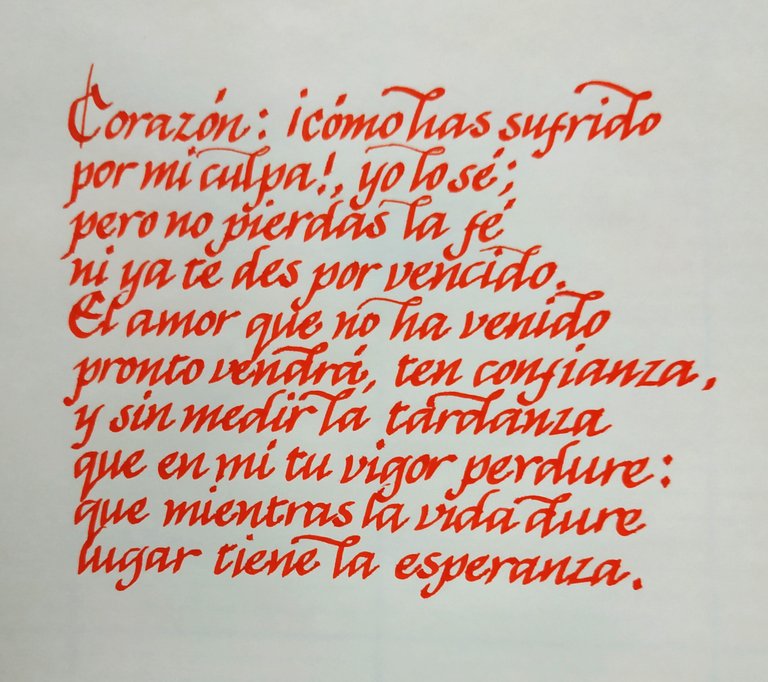 Corazón: ¡cómo has sufrido
por mi culpa!, yo lo sé;
pero no pierdas la fé
ni ya te des por vencido.
El amor que no ha venido
pronto vendrá, ten confianza,
y sin medir la tardanza
que en mi tu vigor perdure:
que mientras la vida dure
lugar tiene la esperanza.